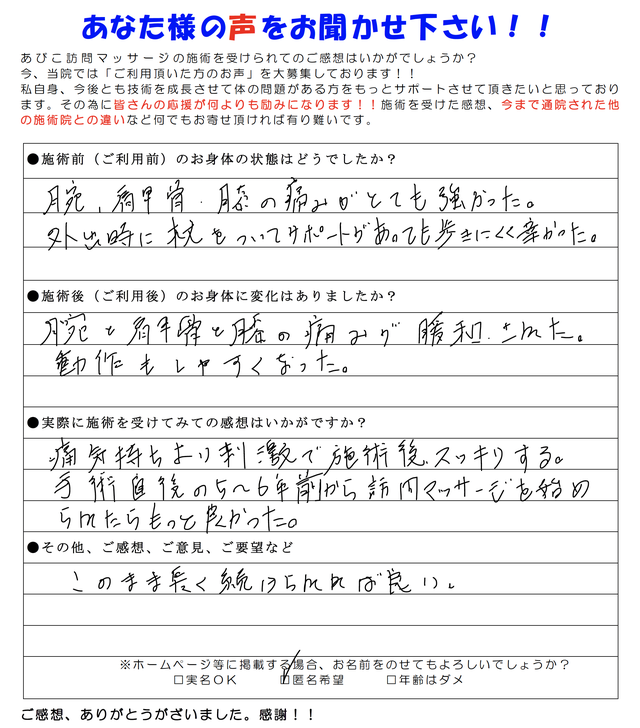 あなた様の声をお聞かせ下さい！！
あびこ訪問マッサージの施術を受けられてのご感想はいかがでしょうか？
今、当院では「ご利用頂いた方のお声」を大募集しております！！
私自身、今後とも技術を成長させて体の問題がある方をもっとサポートさせて頂きたいと思っており
ます。その為に皆さんの応援が何よりも励みになります！！施術を受けた感想、今まで通院された他
の施術院との違いなど何でもお寄せ頂ければ有り難いです。
●施術前（ご利用前）のお身体の状態はどうでしたか？
腕、肩甲骨・膝の痛みがとても強かった。
外出時に杖をついてサポートがあっても歩きにくく辛かった。
●施術後（ご利用後）のお身体に変化はありましたか？
腕と肩甲骨と膝の痛みが緩和された。
動作もしやすくなった。
●実際に施術を受けてみての感想はいかがですか？
痛気持ちより刺激で施術後、スッキリする。
手術直後の5〜6年前から訪問マッサージを始め
られたらもっと良かった。
●その他、ご感想、ご意見、ご要望など
このまま長く続けられれば良い。
※ホームページ等に掲載する場合、お名前をのせてもよろしいでしょうか？
□実名ＯＫ　□匿名希望　□年齢はダメ
ご感想、ありがとうがざいました。感謝！！